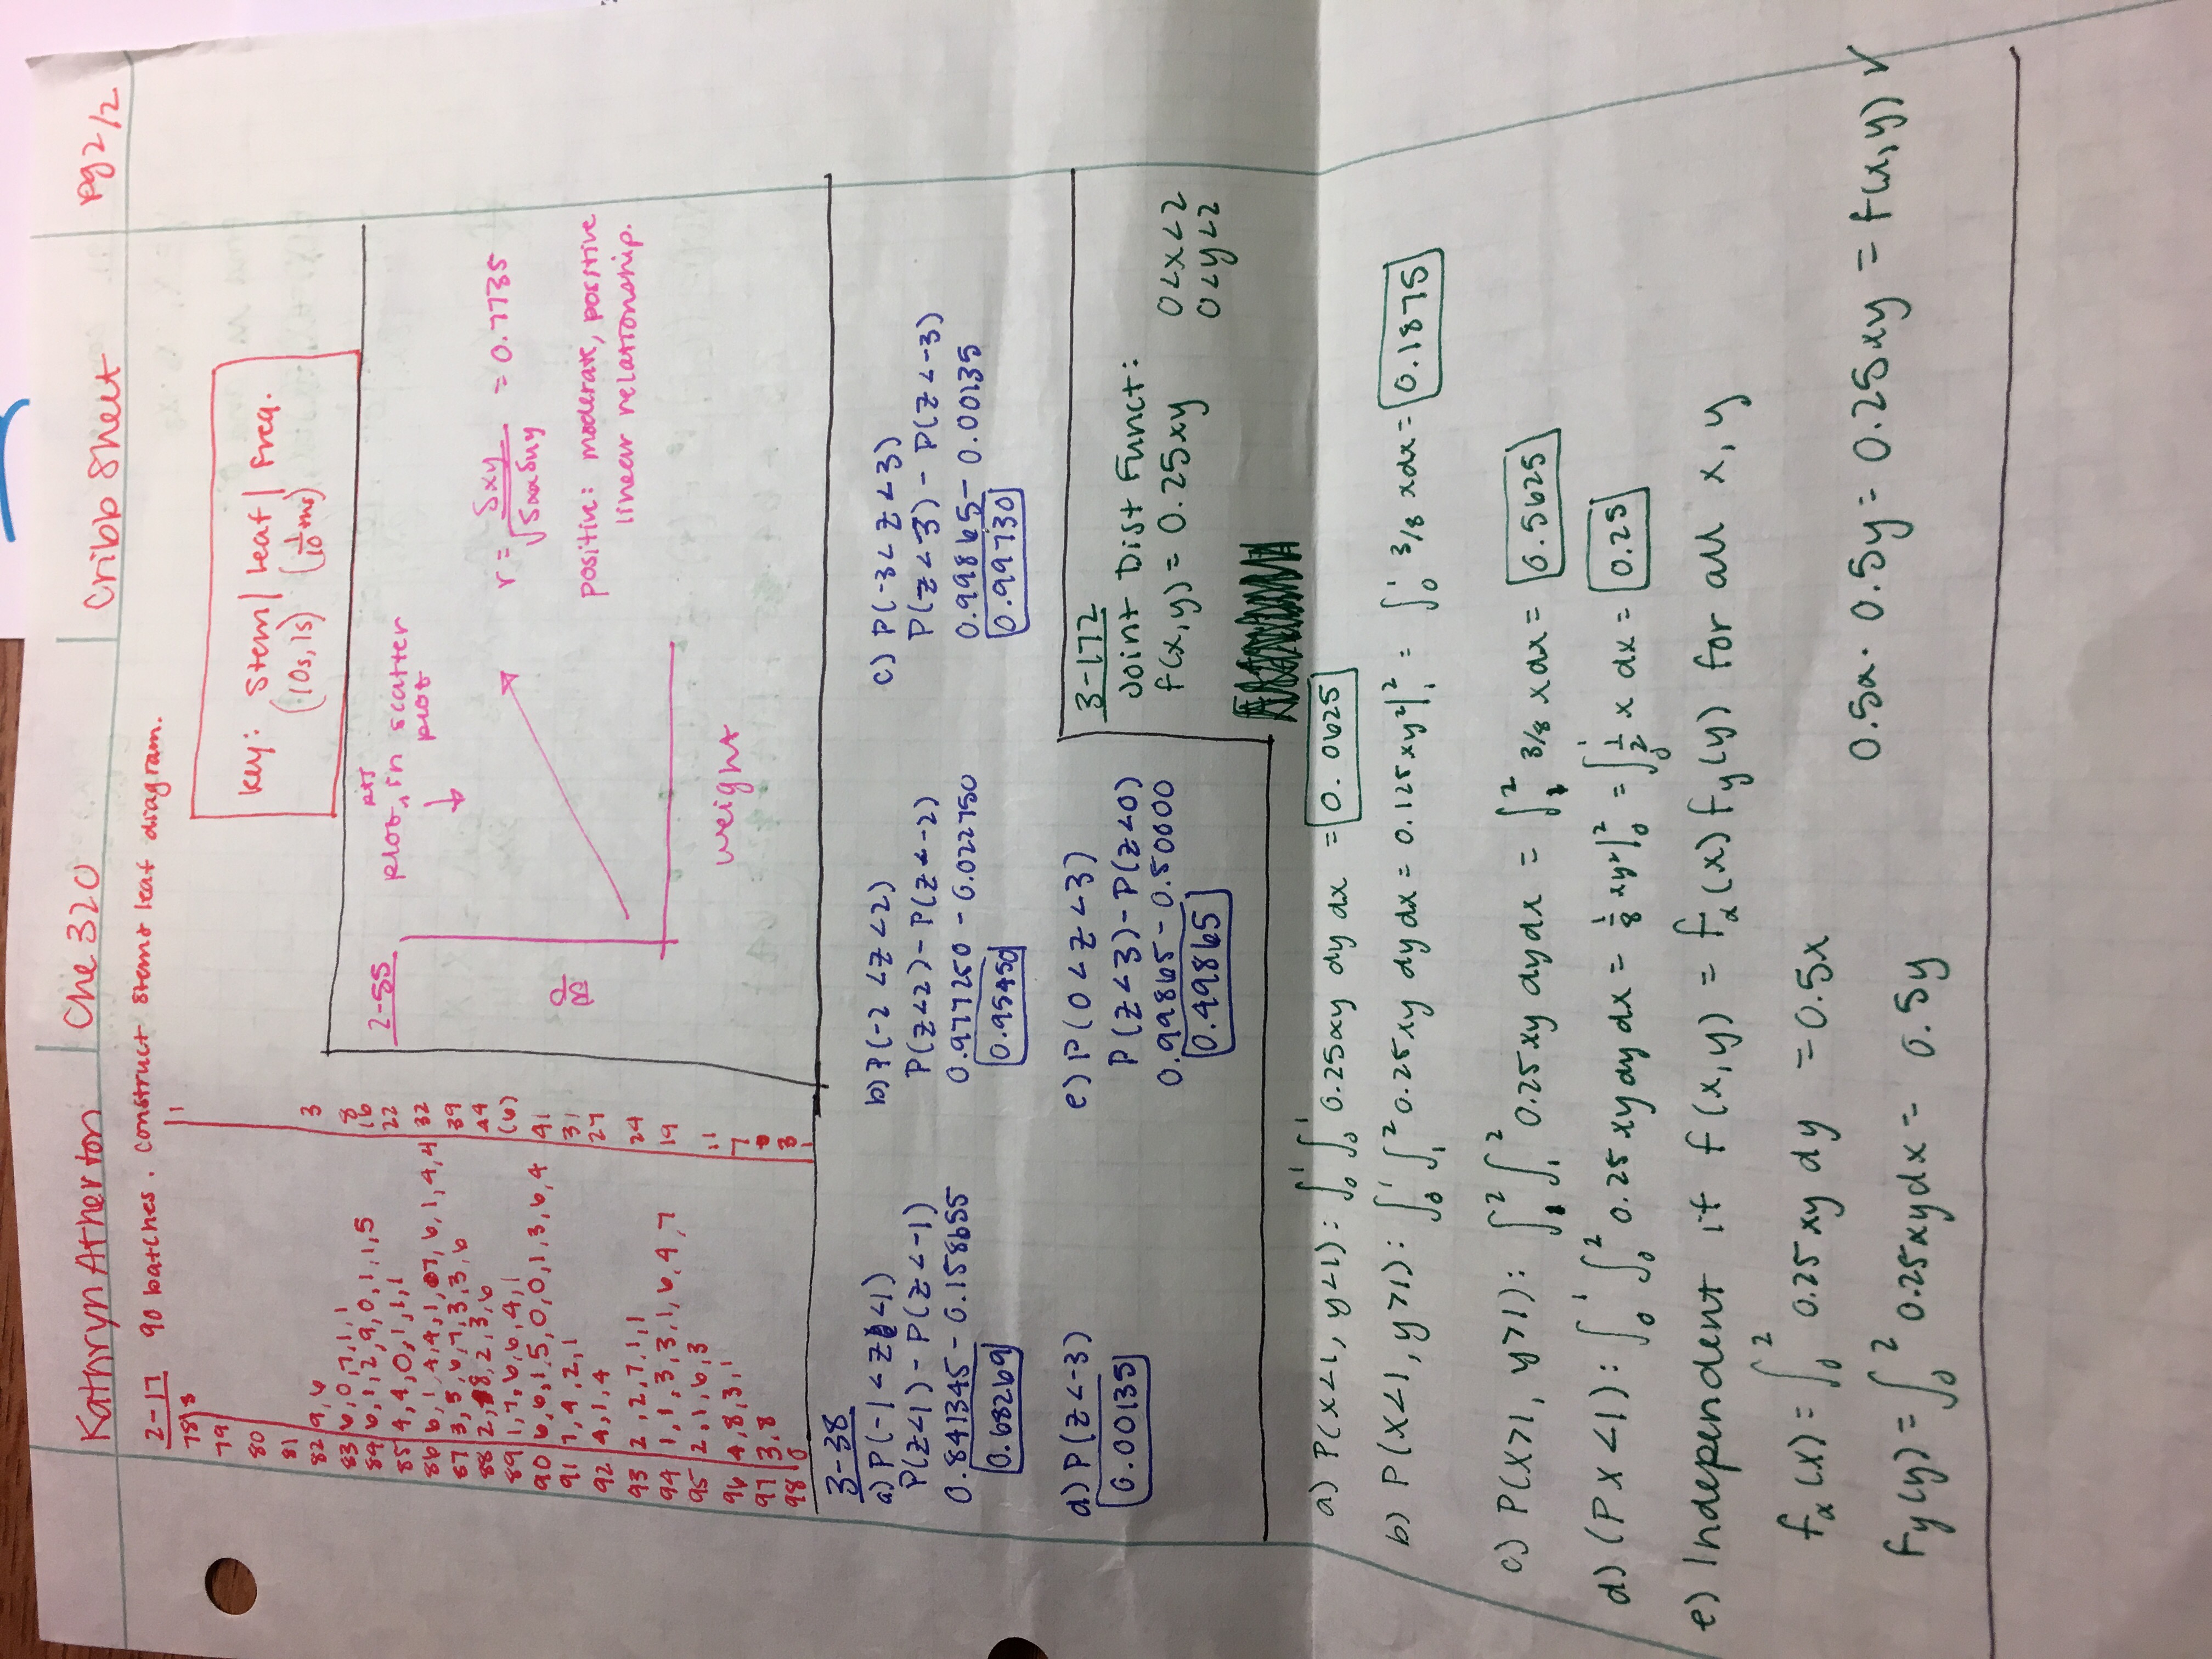 Kathryn Atherton | Che 320 | Cribb Sheet | pg 2/2
2-17 90 batches. construct stem & leaf diagram.
78|8 | 1
79|
80|
81|
82|9,6 | 3
83|6,0,7,1,1 | 8
84|6,1,2,9,0,1,1,5 | 16
85|4,4,0,1,1,1 | 22
86|6,1,4,4,1,7,6,1,4,4| 32
87|3,5,6,7,3,3,6 | 39
88|2,8,2,3,6 | 44
89|1,7,6,6,4,1 | (6)
90|6,6,1,5,0,0,1,3,6,4 | 41
91|7,4,2,1 | 31
92|4,1,4 | 27
93|2,2,7,1,1 | 24
94|1,1,3,3,1,6,4,7 | 19
95|2,1,6,3 | 11
96|4,8,3,1 | 7
97|3,8 | 3
98|0 | 1
Key: Stem | Leaf | Freq.
(10s, 1s) (1/10 ths)
2-55
pts
plot ^ in scatter
plot
↓
BP
weight
r = Sxy / √SxxSyy = 0.7735
positive: moderate, positive
linear relationship.
3-38
a) P(-1 < Z < 1)
P(Z<1) - P(Z<-1)
0.841345 - 0.158655
0.68269
b) P(-2 < Z < 2)
P(Z<2) - P(Z<-2)
0.977250 - 0.022750
0.95450
c) P(-3 < Z < 3)
P(Z<3) - P(Z<-3)
0.99865 - 0.00135
0.99730
d) P(Z<-3)
0.00135
e) P(0 < Z < 3)
P(Z<3) - P(Z<0)
0.99865 - 0.50000
0.49865
3-172
Joint Dist Funct:
f(x,y) = 0.25xy 0<x<2
0<y<2
a) P(X<1, y<1): ∫₀¹ ∫₀¹ 0.25xy dy dx = 0.0625
b) P(X<1, y>1): ∫₀¹ ∫₁² 0.25xy dy dx = 0.125xy²|₁² = ∫₀¹ 3/8 xdx = 0.1875
c) P(X>1, y>1): ∫₁² ∫₁² 0.25xy dy dx = ∫₁² 3/8 x dx = 0.5625
d) (PX<1): ∫₀¹ ∫₀² 0.25 xy dy dx = 1/8 xy²|₀² = ∫₀¹ 1/2 x dx = 0.25
e) Independent if f(x,y) = fx(x) fy(y) for all x, y
fx(x) = ∫₀² 0.25 xy dy = 0.5x
0.5x · 0.5y = 0.25xy = f(x,y) ✓
fy(y) = ∫₀² 0.25xydx = 0.5y